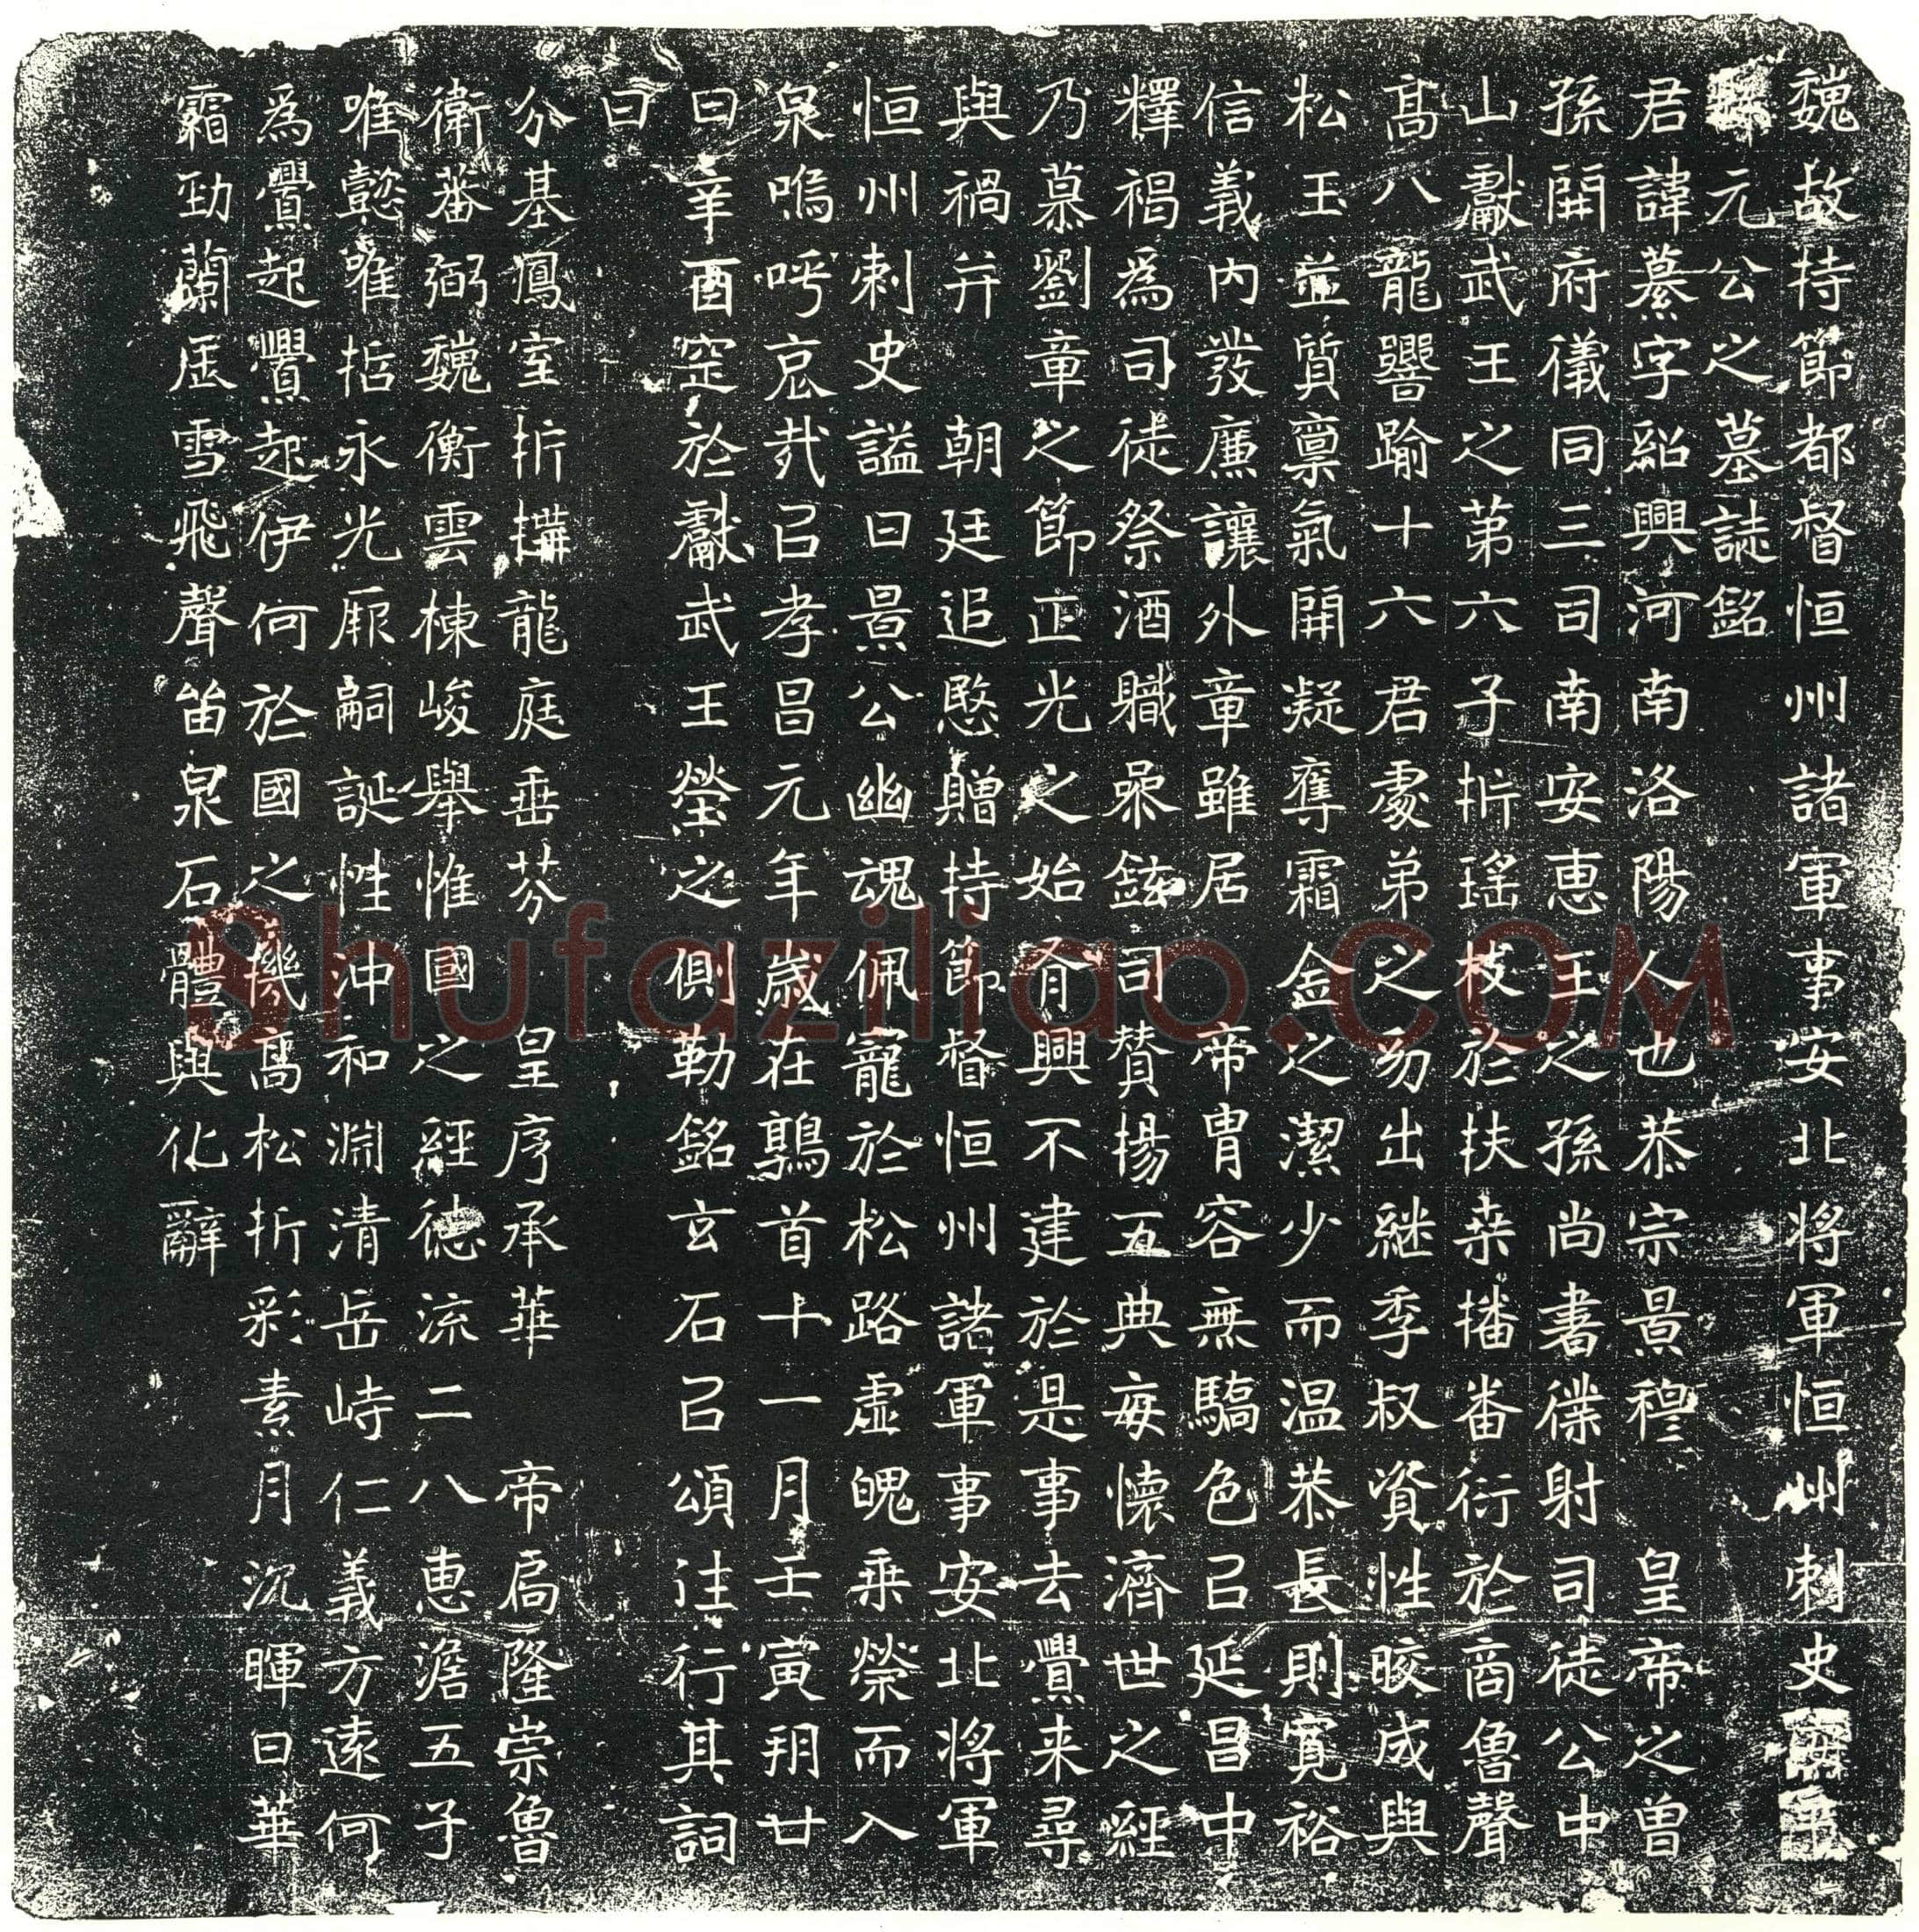 魏故持節都督恒州諸軍事安北将軍恒州刺史安平
縣元公之墓誌銘
君諱纂字紹興河南洛陽人也恭宗景穆 皇帝之曾
孫開府儀同三司南安惠王之孫尚書僕射司徒公中
山獻武王之第六子折瑤枝於扶桒播番衍於商魯聲
高八龍響踰十六君處弟之幼出継季叔資性皎成與
松玉並質稟氣開凝奪霜金之潔少而温恭長則寬裕
信義内發廉讓外章雖居 帝胄容無驕色以延昌中
釋褐為司徒祭酒軄參鉉司賛揚五典每懷濟世之經
乃慕劉章之節正光之始有興不建於是事去釁来尋
與禍并 朝廷追愍贈持節督恒州諸軍事安北将軍
恒州刺史謚曰景公幽魂佩寵於松路虚魄乗榮而入
泉嗚呼哀哉以孝昌元年歲在鶉首十一月壬寅朔廿
日辛酉窆於獻武王塋之側勒銘玄石以頌往行其詞
曰
分基鳳室折構龍庭垂芬 皇序承華 帝扃隆崇魯
衛蕃弼魏衡雲棟峻舉惟國之經德流二八惠澹五子
唯懿唯哲永光厥嗣誕性沖和淵清岳峙仁義方遠何
為釁起釁起伊何於國之機高松折彩素月沉暉日華
霜勁蘭居雪飛聲留泉石體與化辭
Shufaziliao.COM